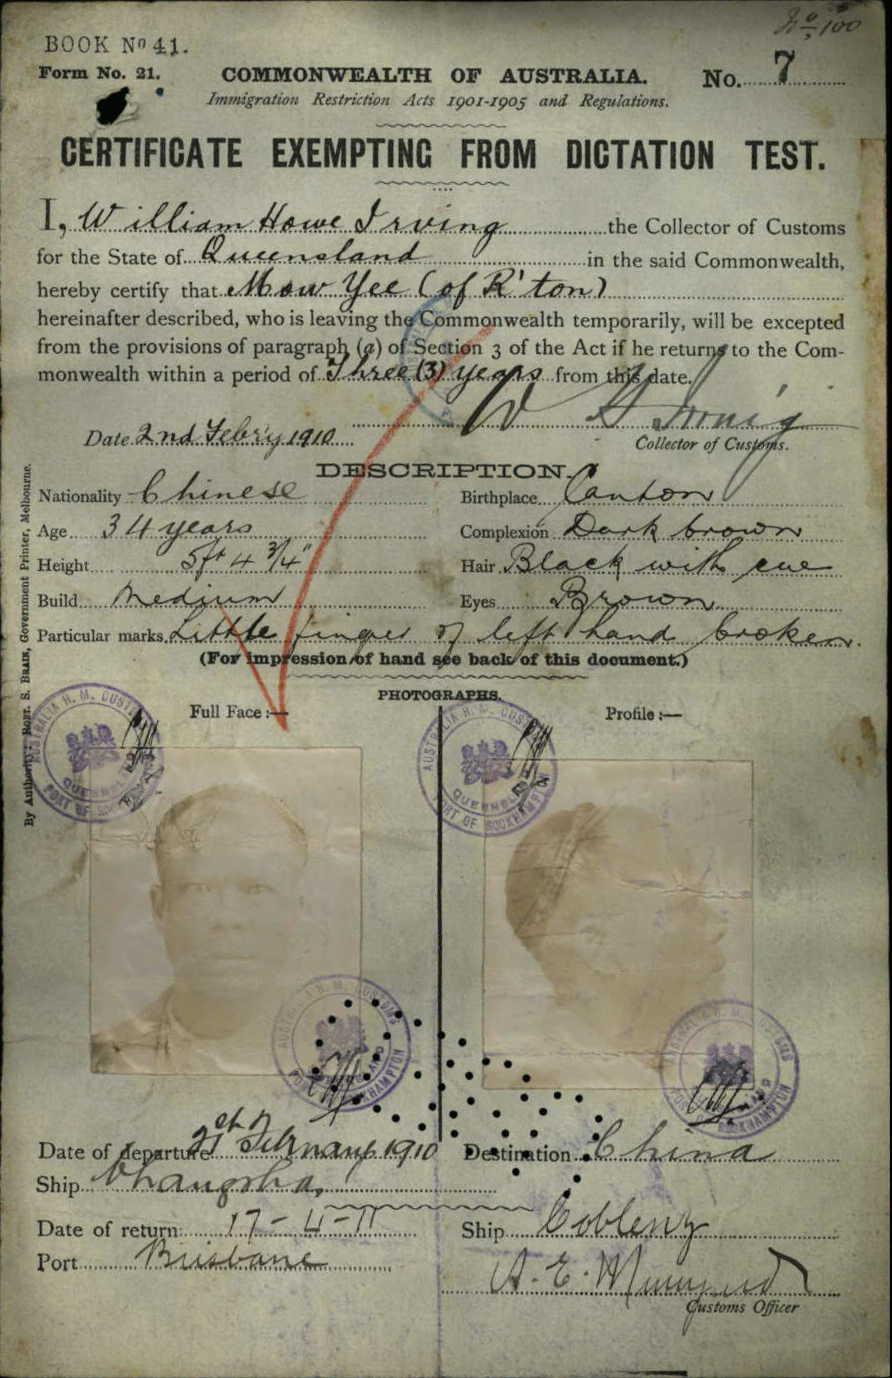 No 100
BOOK No 41.
Form No. 21.
COMMONWEALTH OF AUSTRALIA.
No. 7
Immigration Restriction Acts 1901-1905 and Regulations.
CERTIFICATE EXEMPTING FROM DICTATION TEST.
I, William Howe Irving the Collector of Customs
for the State of Queensland in the said Commonwealth,
hereby certify that Mow Yee (of R'ton)
hereinafter described, who is leaving the Commonwealth temporarily, will be excepted
from the provisions of paragraph (a) of Section 3 of the Act if he returns to the Com-
monwealth within a period of Three (3) years from this date.
W H Irving
Date 2nd Feb'ry 1910
Collector of Customs.
DESCRIPTION.
Nationality Chinese
Birthplace Canton
Age 34 years
Complexion Dark brown
Height 5ft 4 3/4"
Hair Black with cue
Build Medium
Eyes Brown
Particular marks Little finger of left hand broken.
(For impression of hand see back of this document.)
PHOTOGRAPHS.
Full Face :—
Profile :—
By Authority: ROBT. S. BRAIN, Government Printer, Melbourne.
AUSTRALIA H. M. CUSTOMS
QUEENSLAND
PORT OF ROCKHAMPTON
AUSTRALIA H. M. CUSTOMS
QUEENSLAND
PORT OF ROCKHAMPTON
AUSTRALIA H. M. CUSTOMS
QUEENSLAND
PORT OF ROCKHAMPTON
AUSTRALIA H. M. CUSTOMS
QUEENSLAND
PORT OF ROCKHAMPTON
Date of departure 21st February 1910
Destination China
Ship Changsha,
Date of return: 17-4-11
Ship Coblenz
Port Brisbane
A. E.
Customs Officer